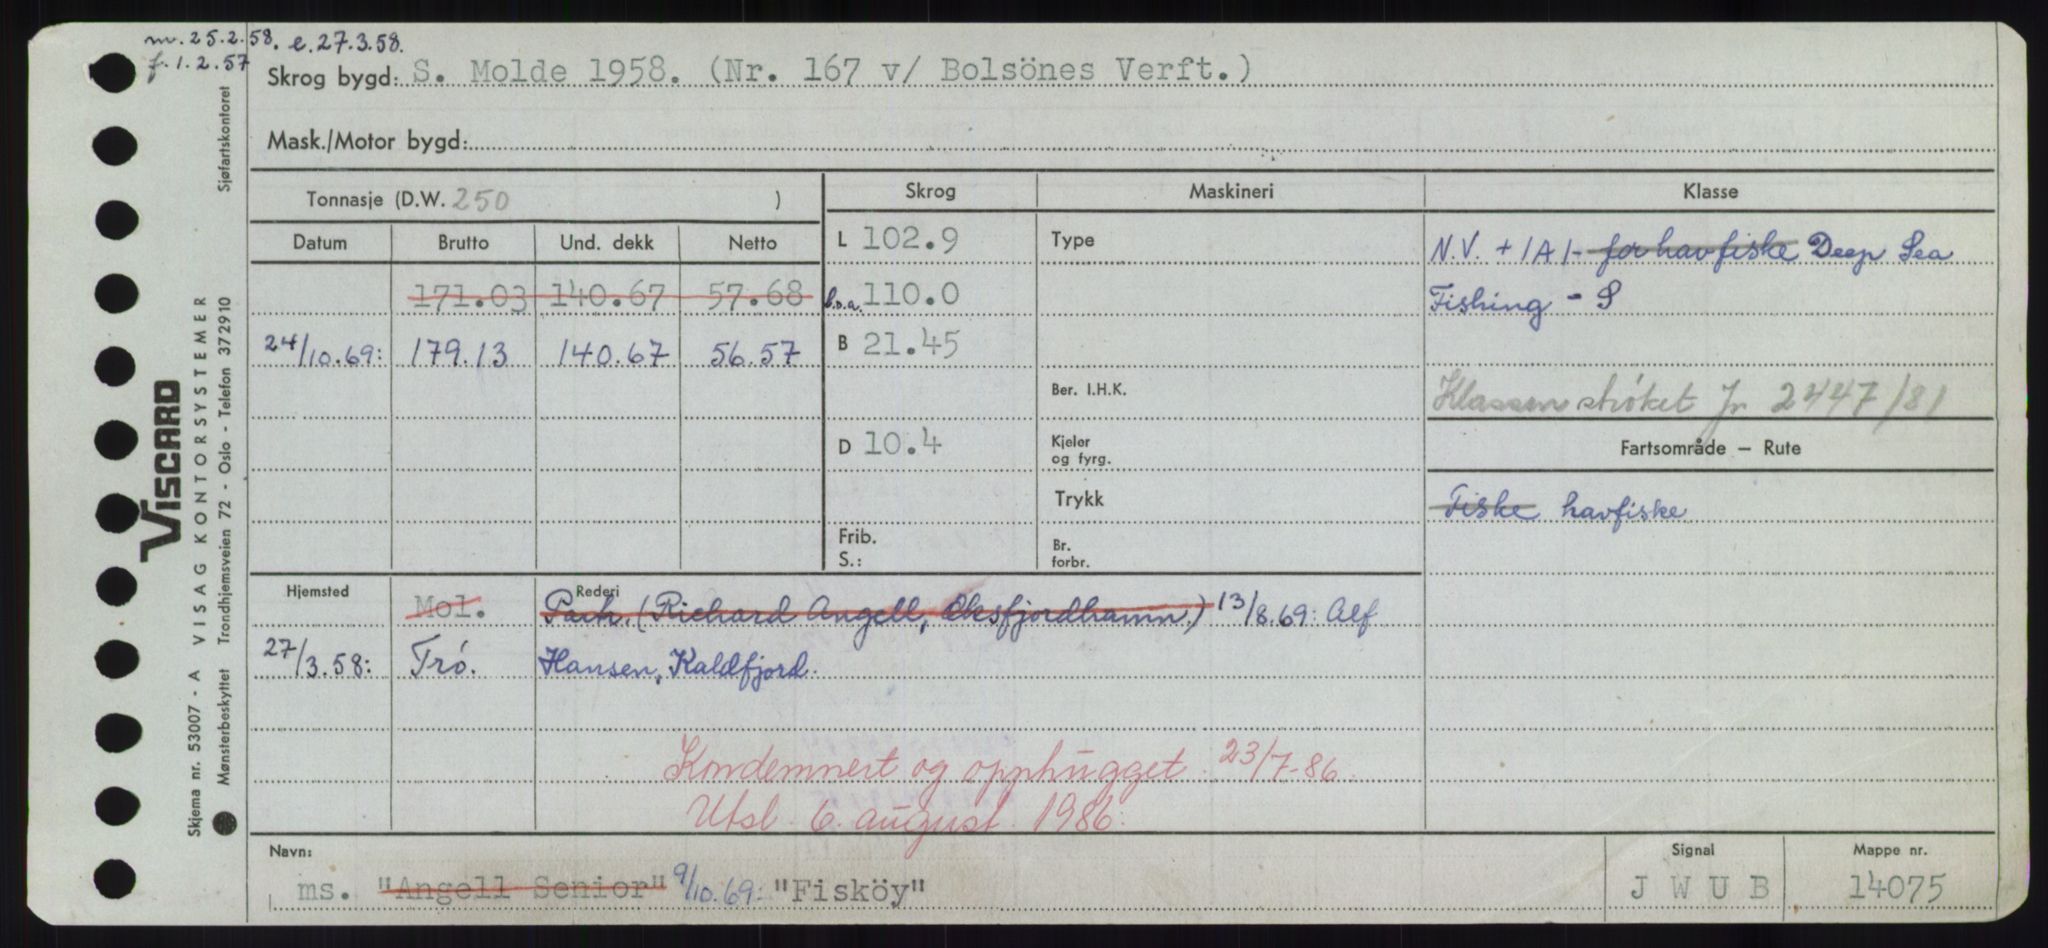 m. 25.2.58. e. 27.3.58.
f. 1.2.57
Skrog bygd: S. Molde 1958. (Nr. 167 v/ Bolsönes Verft.)
Mask./Motor bygd:
Tonnasje (D.W. 250 )
Skrog Maskineri Klasse
Datum Brutto Und. dekk Netto
L 102.9 Type
N.V. + 1A1 - for havfiske Deep Sea
171.03 140.67 57.68 l.o.a. 110.0
Fishing - S
24/10.69: 179.13 140.67 56.57 B 21.45
Ber. I.H.K.
Klassen strøket Jr 2447/81
D 10.4 Kjeler
og fyrg.
Fartsområde — Rute
Trykk
Fiske havfiske
Frib.
S.:
Br.
forbr.
Hjemsted Rederi
Mol. Park. (Richard Angell, Oksfjordhamn.) 13/8.69: Alf
27/3.58: Trö. Hansen, Kaldfjord.
Kondemnert og opphugget 23/7-86.
Utsl. 6. august 1986.
Navn: Signal Mappe nr.
ms. "Angell Senior" 9/10.69: "Fisköy" J W U B 14075
Skjema nr. 53007 - A VISAG KONTORSYSTEMER Sjøfartskontoret
Mønsterbeskyttet Trondhjemsveien 72 - Oslo - Telefon 372910
VISCARD